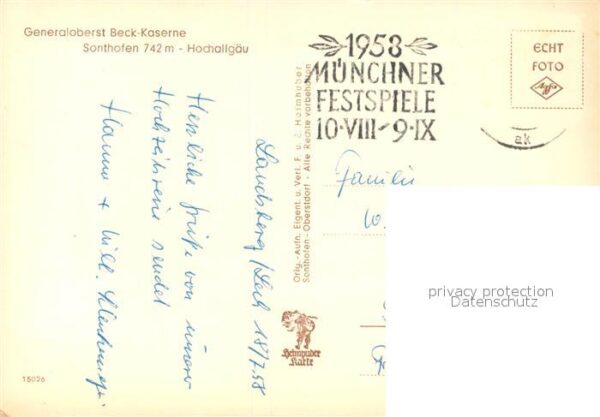 Generaloberst Beck-Kaserne
Sonthofen 742 m - Hochallgäu
Landsberg/Lech 18/7.58
Herzliche Grüße von unserer
Hochzeitsreise sendet
Hanno + Will.
15026
Orig.-Aufn. Eigent. u. Verl. F. u. E. Heimhuber
Sonthofen - Oberstdorf - Alle Rechte vorbehalten
Heimhuber
Karte
1958
MÜNCHNER
FESTSPIELE
10·VIII-9·IX
ak
ECHT
FOTO
Agfa
Familie
W.
privacy protection
Datenschutz